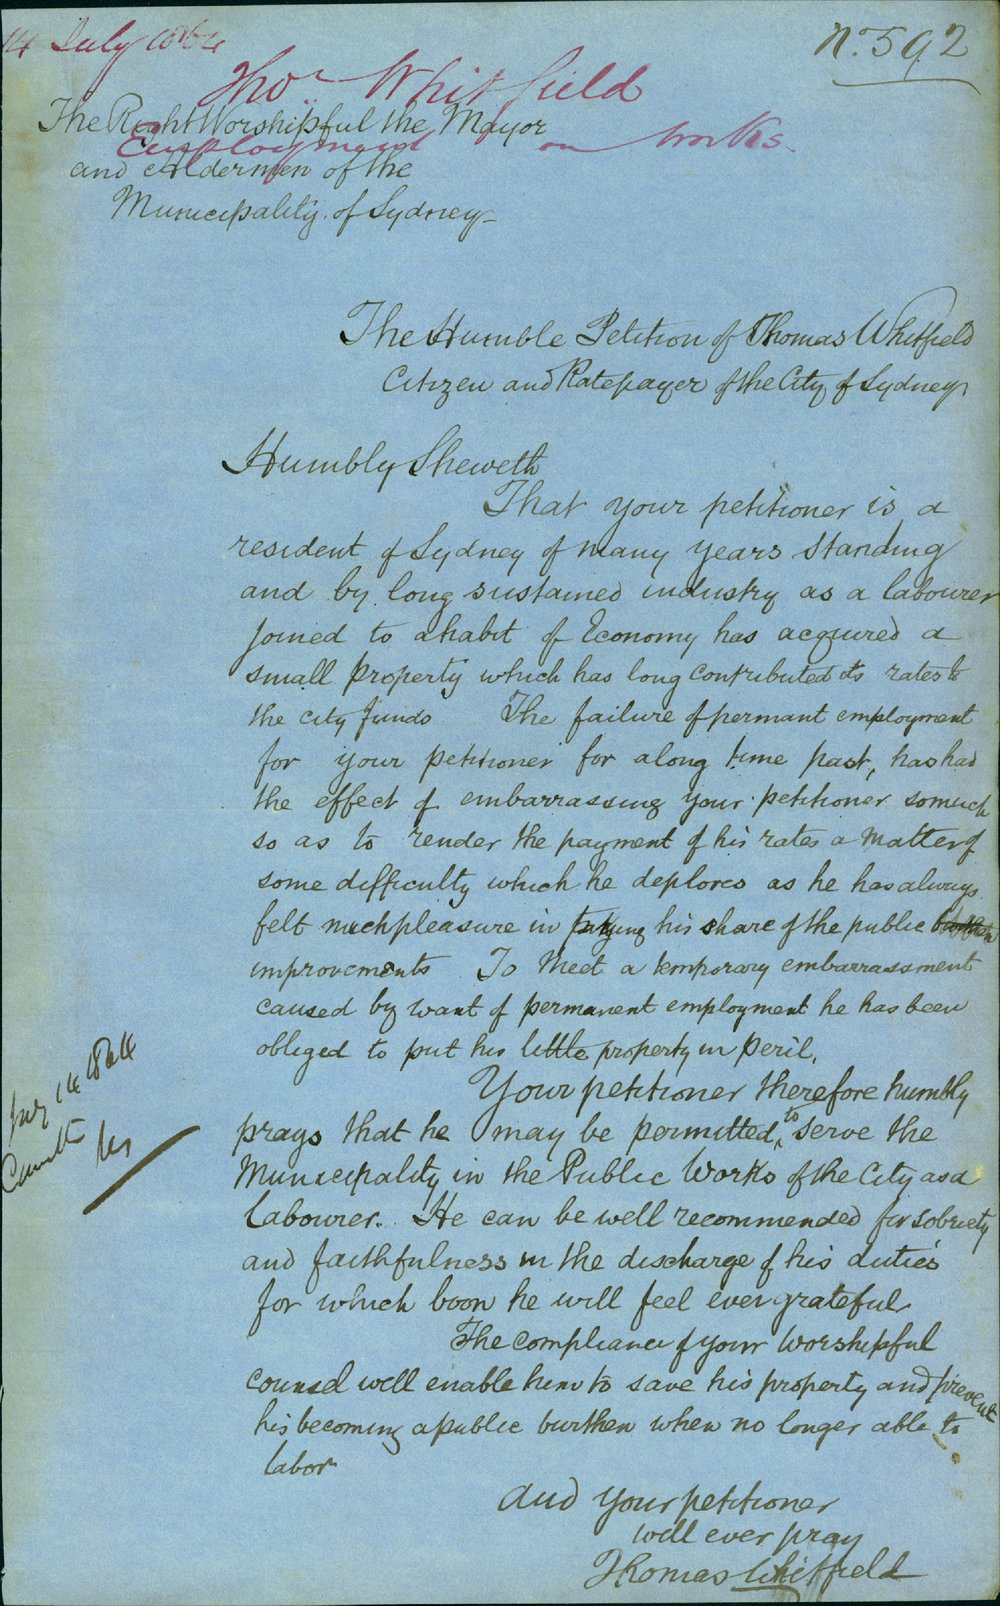 14 July 1864
No. 592
Thos Whitfield
The Right Worshipful the Mayor
Employment on works.
and Aldermen of the
Municipality of Sydney
The Humble Petition of Thomas Whitfield
Citizen and Ratepayer of the City of Sydney,
Humbly Sheweth
That your petitioner is a
resident of Sydney of many years standing
and by long sustained industry as a labourer
joined to a habit of Economy has acquired a
small property which has long contributed its rates to
the city funds The failure of permant employment
for your petitioner for along time past, has had
the effect of embarrassing your petitioner somuch
so as to render the payment of his rates a matter of
some difficulty which he deplores as he has always
felt much pleasure in taking his share of the public
improvements To meet a temporary embarrassment
caused by want of permanent employment he has been
obliged to put his little property in peril,
Your petitioner therefore humbly
prays that he may be permitted, to serve the
Municipality in the Public Works of the City as a
Labourer. He can be well recommended for sobriety
and faithfulness in the discharge of his duties
for which boon he will feel ever grateful
July 14 1864
The compliance of your Worshipful
counsel will enable him to save his property and prevent
his becoming a public burthen when no longer able to
labor
and your petitioner
will ever pray
Thomas Whitfield